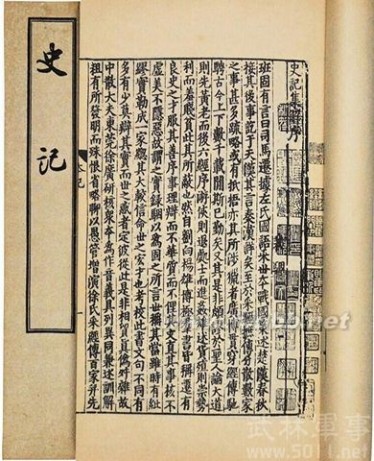 史記
史記集解序
班固有言曰司馬遷據左氏國語采世本戰國策述楚漢春秋
接其後事訖于天漢其言秦漢詳矣至於采經摭傳分散數家
之事甚多疏略或有抵捂亦其所涉獵者廣博貫穿經傳馳
騁古今上下數千載間斯已勤矣又其是非頗謬於聖人論大道
則先黃老而後六經序游俠則退處士而進姦雄述貨殖則崇勢
利而羞賤貧此其所蔽也然自劉向揚雄博極羣書皆稱遷有
良史之才服其善序事理辯而不華質而不俚其文直其事核不
虛美不隱惡故謂之實錄駰以為固之所言世稱其當雖時有紕
繆實勒成一家總其大較信命世之宏才也考校此書文句不同有
多有少莫辯其實而世之惑者定彼從此是非相貿真偽舛雜故
中散大夫東莞徐廣研核眾本為作音義具列異同兼述訓解
粗有所發明而殊恨省略聊以愚管增演徐氏采經傳百家并先
武林軍事
www.5011.net